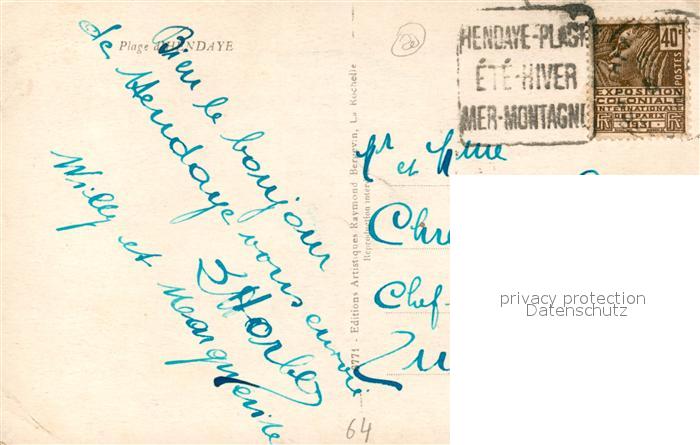 Plage d'HENDAYE
Bien le bonjour
de Hendaye vous envoie
Willy et Marguerite
HENDAYE-PLAGE
ÉTÉ-HIVER
MER-MONTAGNE
40c
POSTES
EXPOSITION
COLONIALE
INTERNATIONALE
PARIS
1931
Mr et Mme
Chr
Chef-
Editions Artistiques Raymond Bergevin, La Rochelle
Reproduction inter
privacy protection
Datenschutz
64